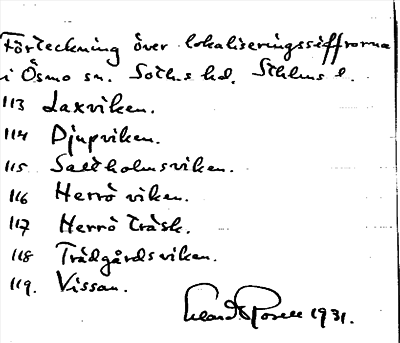 Förteckning över lokaliseringssiffrorna
i Ösmo sn. Soth:s hd. Sthlms l.
113 Laxviken.
114 Djupviken.
115 Saltholmsviken.
116 Herrö viken.
117 Herrö träsk.
118 Trädgårdsviken.
119. Vissan.
1931.